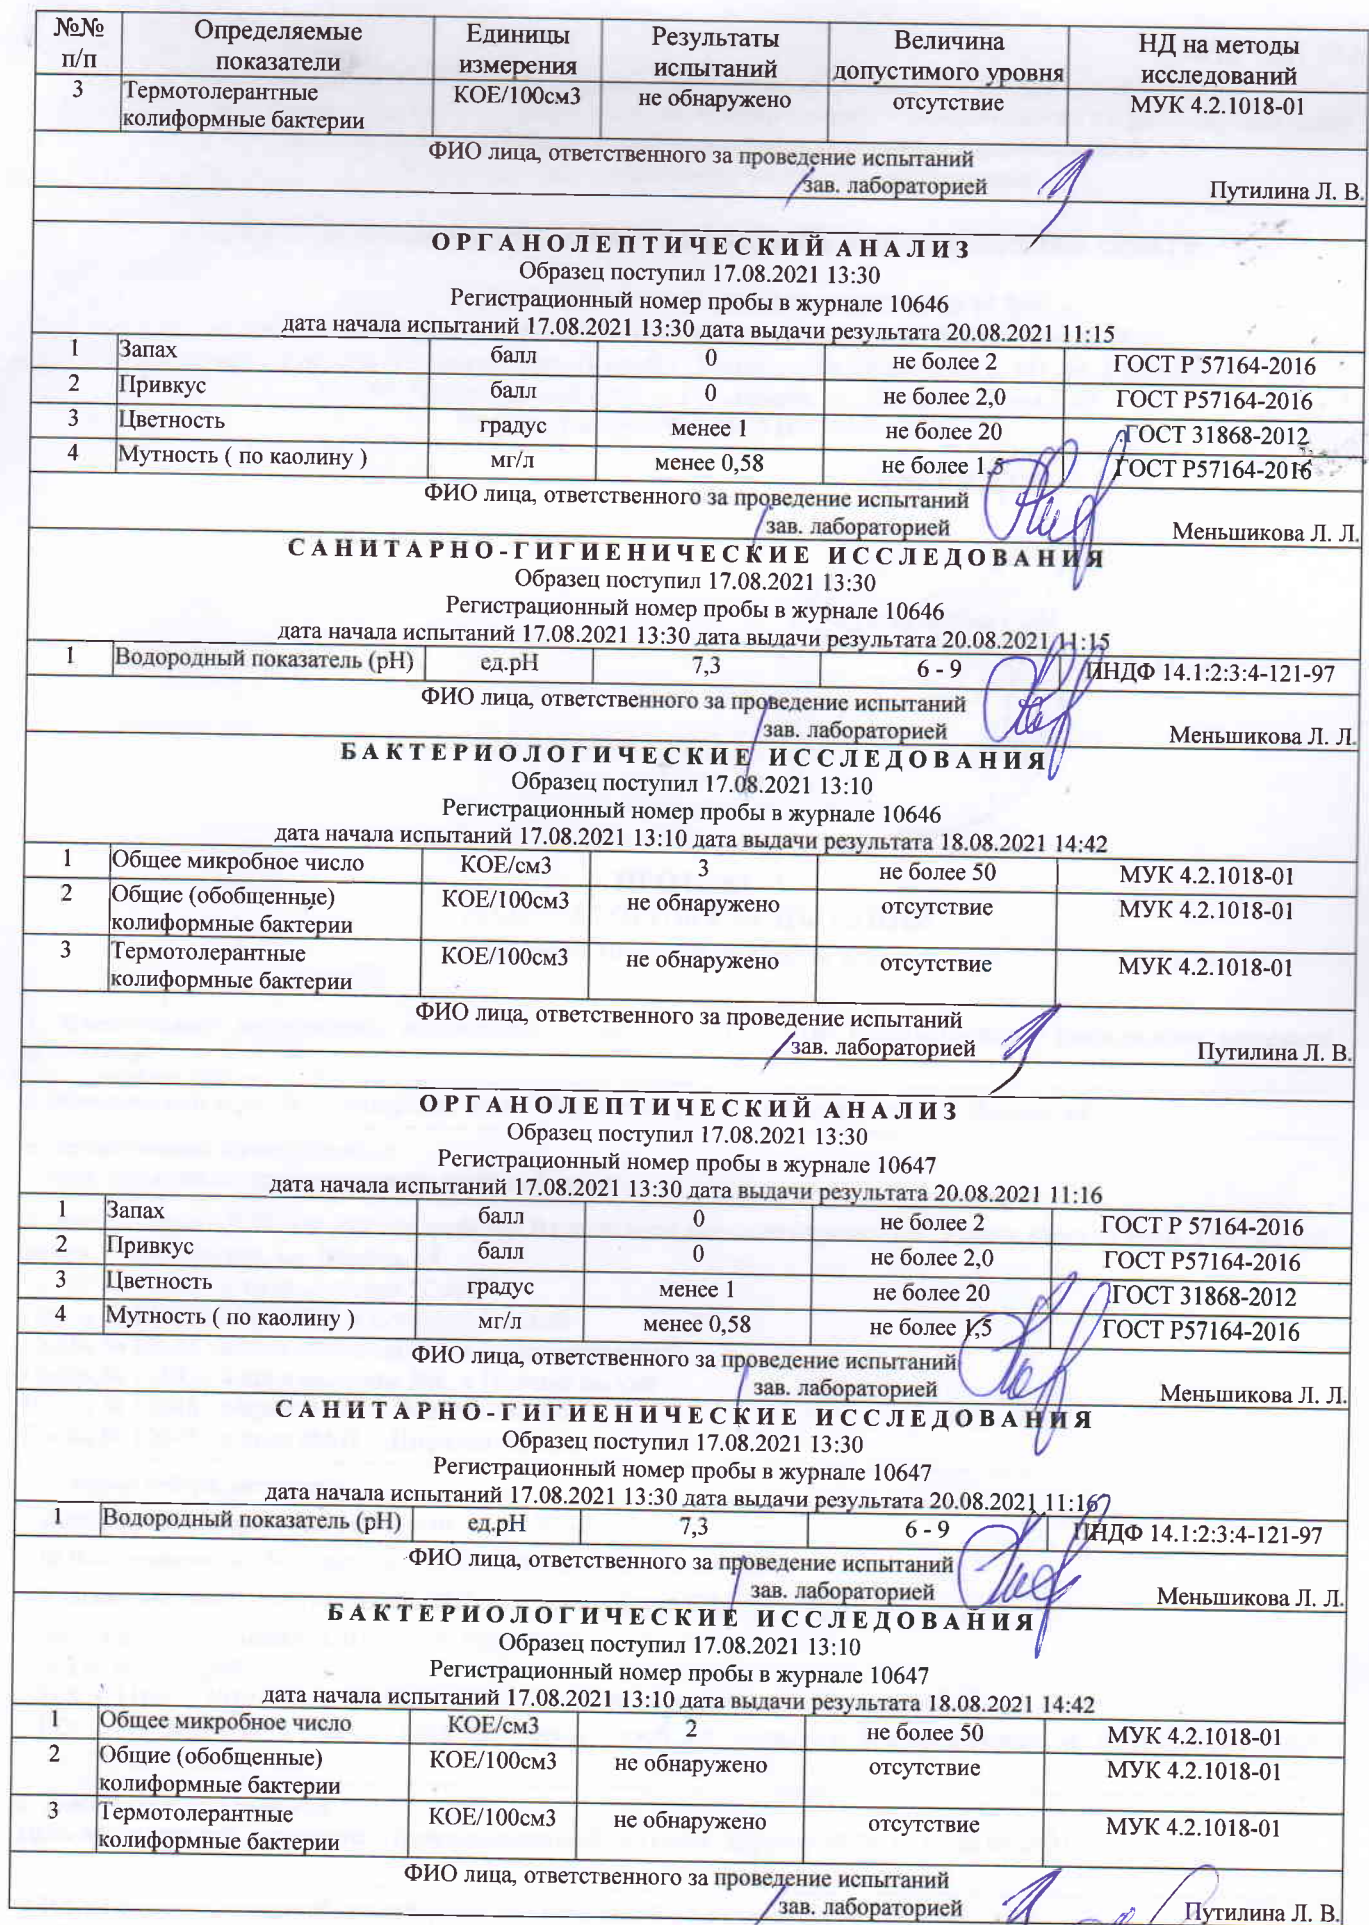 №№ Определяемые Единицы Результаты Величина НД на методы
п/п показатели измерения испытаний допустимого уровня исследований
3 Термотолерантные КОЕ/100см3 не обнаружено отсутствие МУК 4.2.1018-01
колиформные бактерии
ФИО лица, ответственного за проведение испытаний
зав. лабораторией Путилина Л. В.
ОРГАНОЛЕПТИЧЕСКИЙ АНАЛИЗ
Образец поступил 17.08.2021 13:30
Регистрационный номер пробы в журнале 10646
дата начала испытаний 17.08.2021 13:30 дата выдачи результата 20.08.2021 11:15
1 Запах балл 0 не более 2 ГОСТ Р 57164-2016
2 Привкус балл 0 не более 2,0 ГОСТ Р57164-2016
3 Цветность градус менее 1 не более 20 ГОСТ 31868-2012
4 Мутность ( по каолину ) мг/л менее 0,58 не более 1,5 ГОСТ Р57164-2016
ФИО лица, ответственного за проведение испытаний
зав. лабораторией Меньшикова Л. Л.
САНИТАРНО-ГИГИЕНИЧЕСКИЕ ИССЛЕДОВАНИЯ
Образец поступил 17.08.2021 13:30
Регистрационный номер пробы в журнале 10646
дата начала испытаний 17.08.2021 13:30 дата выдачи результата 20.08.2021 11:15
1 Водородный показатель (рН) ед.рН 7,3 6 - 9 ПНДФ 14.1:2:3:4-121-97
ФИО лица, ответственного за проведение испытаний
зав. лабораторией Меньшикова Л. Л.
БАКТЕРИОЛОГИЧЕСКИЕ ИССЛЕДОВАНИЯ
Образец поступил 17.08.2021 13:10
Регистрационный номер пробы в журнале 10646
дата начала испытаний 17.08.2021 13:10 дата выдачи результата 18.08.2021 14:42
1 Общее микробное число КОЕ/см3 3 не более 50 МУК 4.2.1018-01
2 Общие (обобщенные) КОЕ/100см3 не обнаружено отсутствие МУК 4.2.1018-01
колиформные бактерии
3 Термотолерантные КОЕ/100см3 не обнаружено отсутствие МУК 4.2.1018-01
колиформные бактерии
ФИО лица, ответственного за проведение испытаний
зав. лабораторией Путилина Л. В.
ОРГАНОЛЕПТИЧЕСКИЙ АНАЛИЗ
Образец поступил 17.08.2021 13:30
Регистрационный номер пробы в журнале 10647
дата начала испытаний 17.08.2021 13:30 дата выдачи результата 20.08.2021 11:16
1 Запах балл 0 не более 2 ГОСТ Р 57164-2016
2 Привкус балл 0 не более 2,0 ГОСТ Р57164-2016
3 Цветность градус менее 1 не более 20 ГОСТ 31868-2012
4 Мутность ( по каолину ) мг/л менее 0,58 не более 1,5 ГОСТ Р57164-2016
ФИО лица, ответственного за проведение испытаний
зав. лабораторией Меньшикова Л. Л.
САНИТАРНО-ГИГИЕНИЧЕСКИЕ ИССЛЕДОВАНИЯ
Образец поступил 17.08.2021 13:30
Регистрационный номер пробы в журнале 10647
дата начала испытаний 17.08.2021 13:30 дата выдачи результата 20.08.2021 11:16
1 Водородный показатель (рН) ед.рН 7,3 6 - 9 ПНДФ 14.1:2:3:4-121-97
ФИО лица, ответственного за проведение испытаний
зав. лабораторией Меньшикова Л. Л.
БАКТЕРИОЛОГИЧЕСКИЕ ИССЛЕДОВАНИЯ
Образец поступил 17.08.2021 13:10
Регистрационный номер пробы в журнале 10647
дата начала испытаний 17.08.2021 13:10 дата выдачи результата 18.08.2021 14:42
1 Общее микробное число КОЕ/см3 2 не более 50 МУК 4.2.1018-01
2 Общие (обобщенные) КОЕ/100см3 не обнаружено отсутствие МУК 4.2.1018-01
колиформные бактерии
3 Термотолерантные КОЕ/100см3 не обнаружено отсутствие МУК 4.2.1018-01
колиформные бактерии
ФИО лица, ответственного за проведение испытаний
зав. лабораторией Путилина Л. В.